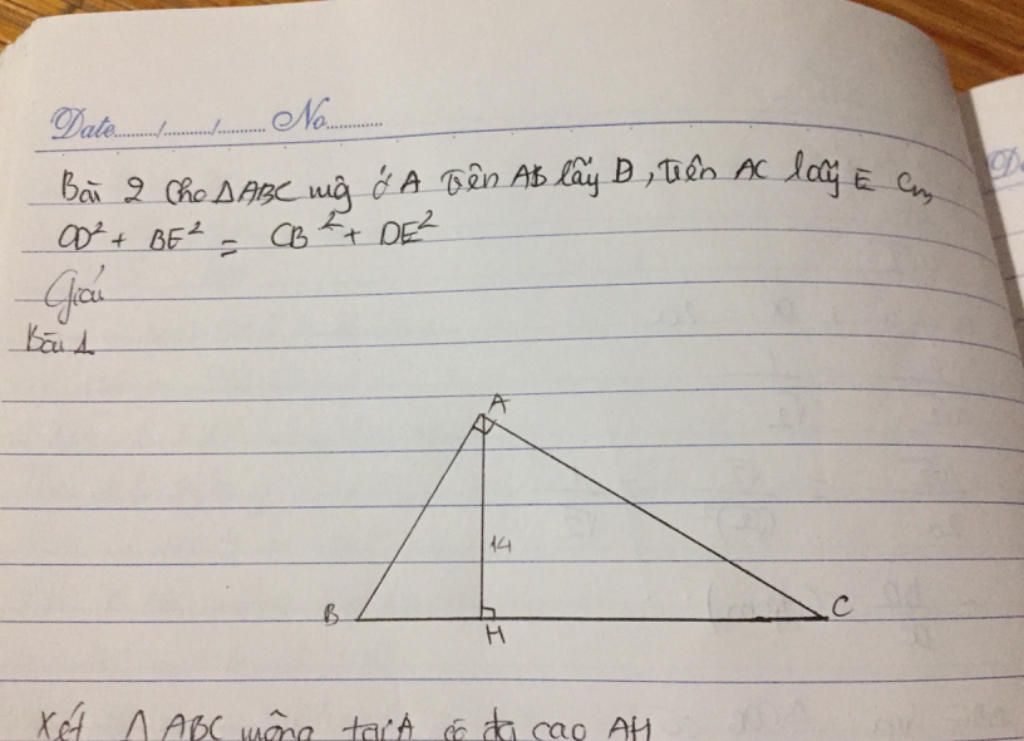 Date......../......../......... No............
Bài 2 Cho ΔABC vuông ở A trên AB lấy D, trên AC lấy E Cm
CD² + BE² = CB² + DE²
Giải
Bài 1
A
14
B
H
C
Xét Δ ABC vuông tại A có đg cao AH